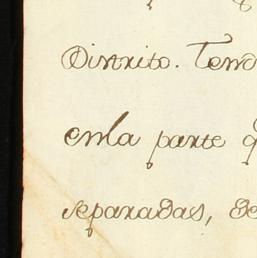 Distrito. Tend
enla parte q
separadas, de